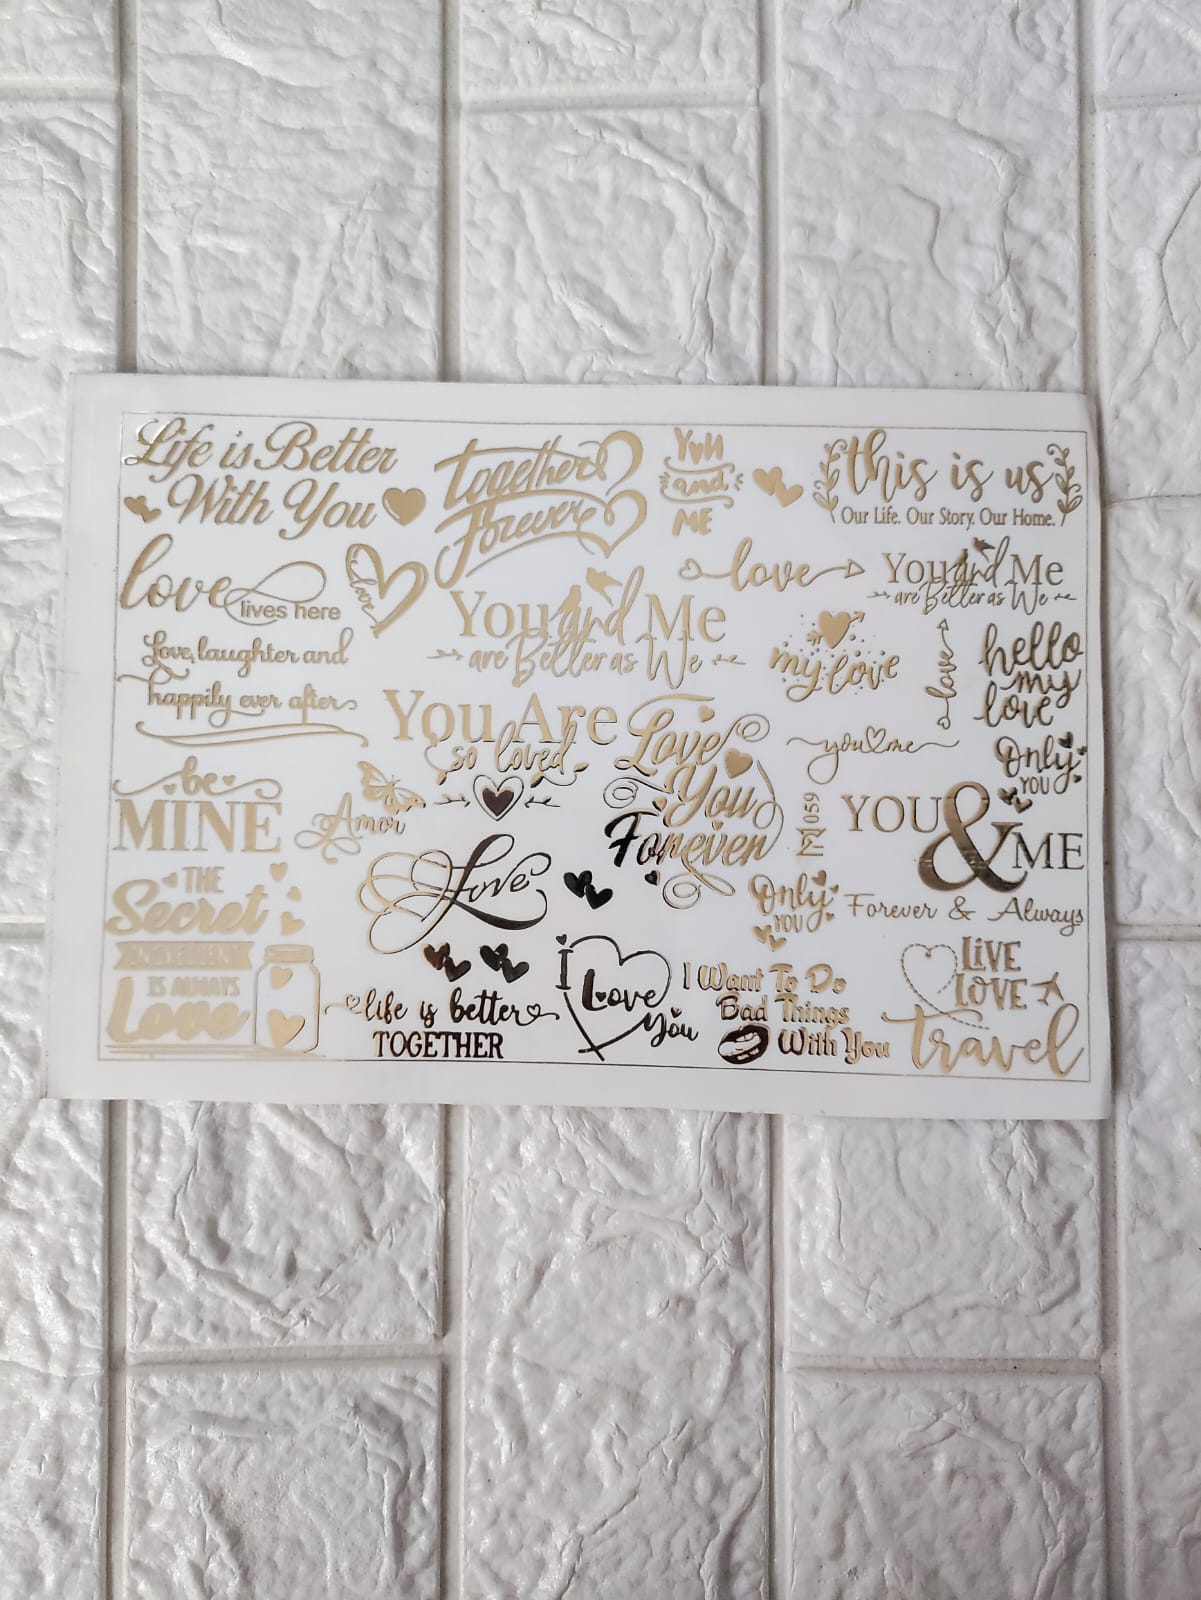 Life is Better
With You
together
Forever
You
and
ME
this is us
Our Life. Our Story. Our Home.
love
lives here
love
love
You and Me
are Better as We
You and Me
are Better as We
my love
love
hello
my
love
Love, laughter and
happily ever after
You Are
so loved
Love
You
Forever
you me
Only
YOU
be
MINE
Amor
059
YOU & ME
Forever & Always
THE
Secret
IS ALWAYS
Love
Love
Only
YOU
life is better
TOGETHER
I
Love
You
I Want To Do
Bad Things
With You
LIVE
LOVE
travel